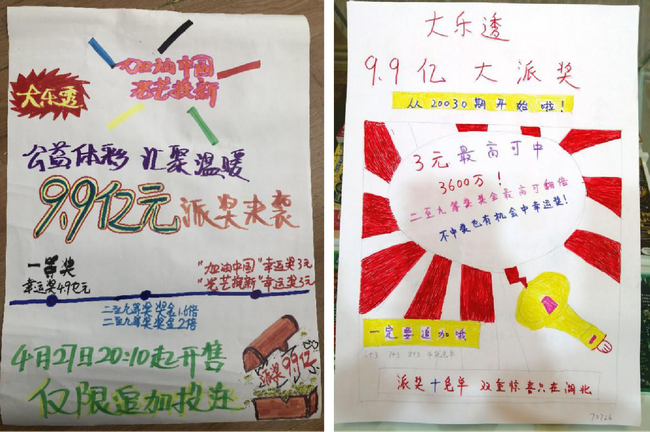 加油中国
大乐透
公益体彩 汇聚温暖
9.9亿元派奖来袭
一等奖
幸运奖4.9亿元
"加油中国"幸运奖3元
幸运奖3元
二至九等奖奖金2倍
4月27日20:10起开售
仅限追加投注
派奖9.9亿
大乐透
9.9亿大派奖
从20030期开始啦!
3元最高可中
3600万!
二至九等奖奖金最高可翻倍
不中奖也有机会中幸运奖!
一定要追加哦
派奖十免单 双重惊喜只在湖北